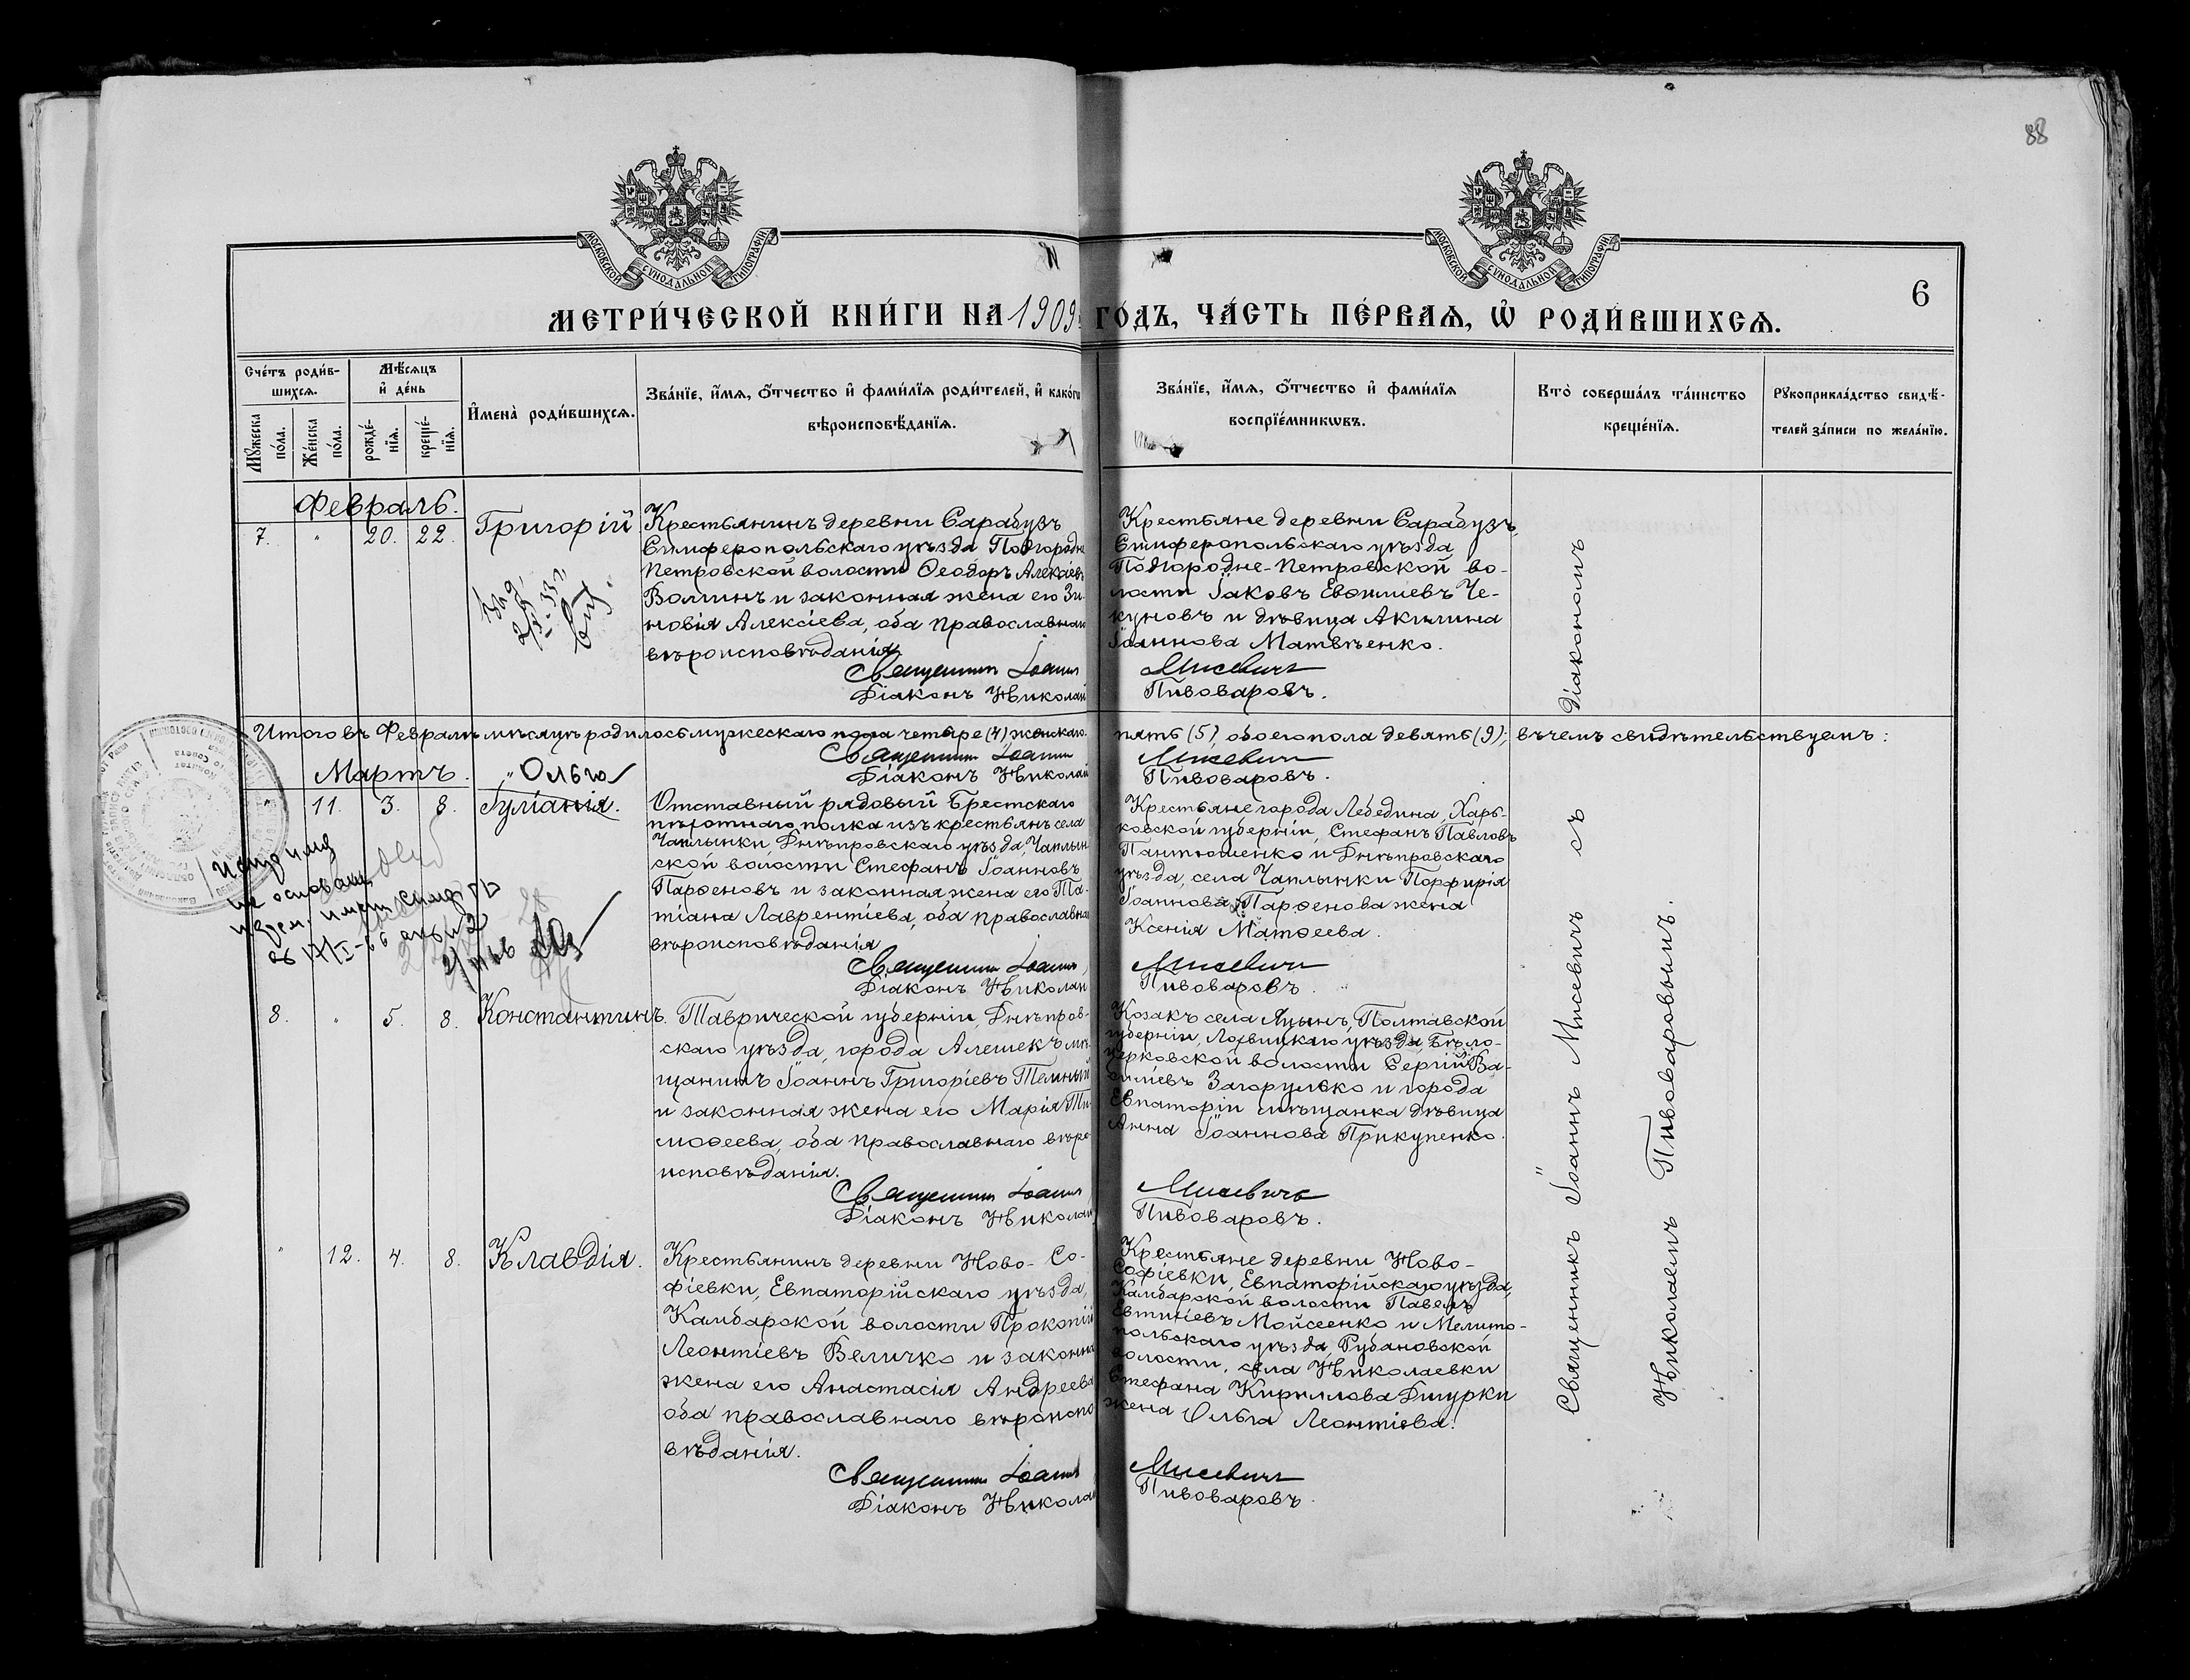 88
МОСКОВСКОЙ СѴНОДАЛЬНОЙ ТИПОГРАФІИ
МОСКОВСКОЙ СѴНОДАЛЬНОЙ ТИПОГРАФІИ
6
МЕТРИ́ЧЕСКОЙ КНИ́ГИ НА 1909 ГО́ДЪ, ЧА́СТЬ ПЕ́РВАЯ, Ѡ РОДИ́ВШИХСЯ.
Сче́тъ роди́в-
шихся.
Мѣ́сяцъ
и де́нь
Му́жеска
по́ла.
Же́нска
по́ла.
рожде́-
нїя.
креще́-
нїя.
Имена̀ роди́вшихся.
Зва́нїе, и́мя, ѻ́тчество и фами́лїя роди́телей, и како́гѡ
вѣроисповѣ́данїя.
Зва́нїе, и́мя, ѻ́тчество и фами́лїя
воспрїе́мникѡвъ.
Кто̀ соверша́лъ та́инство
креще́нїя.
Рꙋкоприкла́дство свидѣ́-
телей за́писи по жела́нїю.
Февраль.
7. " 20. 22. Григорій
Крестьянинъ деревни Сарабузъ
Симферопольскаго уѣзда Подгородне-
Петровской волости Ѳеодоръ Алексіевъ
и законная жена его Зи-
новія Алексіева, оба православнаго
вѣроисповѣданія.
Священникъ Іоаннъ
Діаконъ Николай
Крестьяне деревни Сарабузъ,
Симферопольскаго уѣзда
Подгородне-Петровской во-
лости Іаковъ Евѳиміевъ Че-
куновъ и дѣвица Акилина
Іоаннова Матвѣенко.
Мисевичъ
Пивоваровъ.
Итого въ Февралѣ мѣсяцѣ родилось мужескаго пола четыре (4) женскаго
пять (5), обоего пола девять (9); въ чемъ свидѣтельствуемъ:
Священникъ Іоаннъ
Діаконъ Николай
Мисевичъ
Пивоваровъ.
Мартъ.
Ольга
11. 3. 8. Іуліанія.
Отставный рядовый Брестскаго
пѣхотнаго полка изъ крестьянъ села
Чаплынки, Днѣпровскаго уѣзда, Чаплын-
ской волости Стефанъ Іоанновъ
Парѳеновъ и законная жена его Та-
тіана Лаврентіева, оба православнаго
вѣроисповѣданія
Священникъ Іоаннъ
Діаконъ Николай
Крестьяне города Лебедина, Харь-
ковской губерніи, Стефанъ Павловъ
Пантюшенко и Днѣпровскаго
уѣзда, села Чаплынки Порфирія
Іоаннова Парѳенова жена
Ксенія Матѳеева.
Мисевичъ
Пивоваровъ.
8. " 5. 8. Константинъ.
Таврической губерніи, Днѣпров-
скаго уѣзда, города Алешекъ мѣ-
щанинъ Іоаннъ Григоріевъ
и законная жена его Марія Ти-
моѳеева, оба православнаго вѣро-
исповѣданія.
Священникъ Іоаннъ
Діаконъ Николай
Козакъ села Полтавской
губерніи, Лохвицкаго уѣзда, Бѣло-
церковской волости Сергій Ва-
силіевъ Загорулько и города
Евпаторіи мѣщанка дѣвица
Анна Іоаннова Прикупенко.
Мисевичъ
Пивоваровъ.
" 12. 4. 8. Клавдія.
Крестьянинъ деревни Ново-Со-
фіевки, Евпаторійскаго уѣзда,
Камбарской волости Прокопій
Леонтіевъ Величко и законная
жена его Анастасія Андреева
оба православнаго вѣроиспо-
вѣданія.
Священникъ Іоаннъ
Діаконъ Николай
Крестьяне деревни Ново-
Софіевки, Евпаторійскаго уѣзда,
Камбарской волости Павелъ
Евтихіевъ Мойсеенко и Мелито-
польскаго уѣзда, Рубановской
волости, села Николаевки
Стефана Кириллова
жена Ольга Леонтіева.
Мисевичъ
Пивоваровъ.
Священникъ Іоаннъ Мисевичъ съ Діакономъ
Николаемъ Пивоваровымъ.